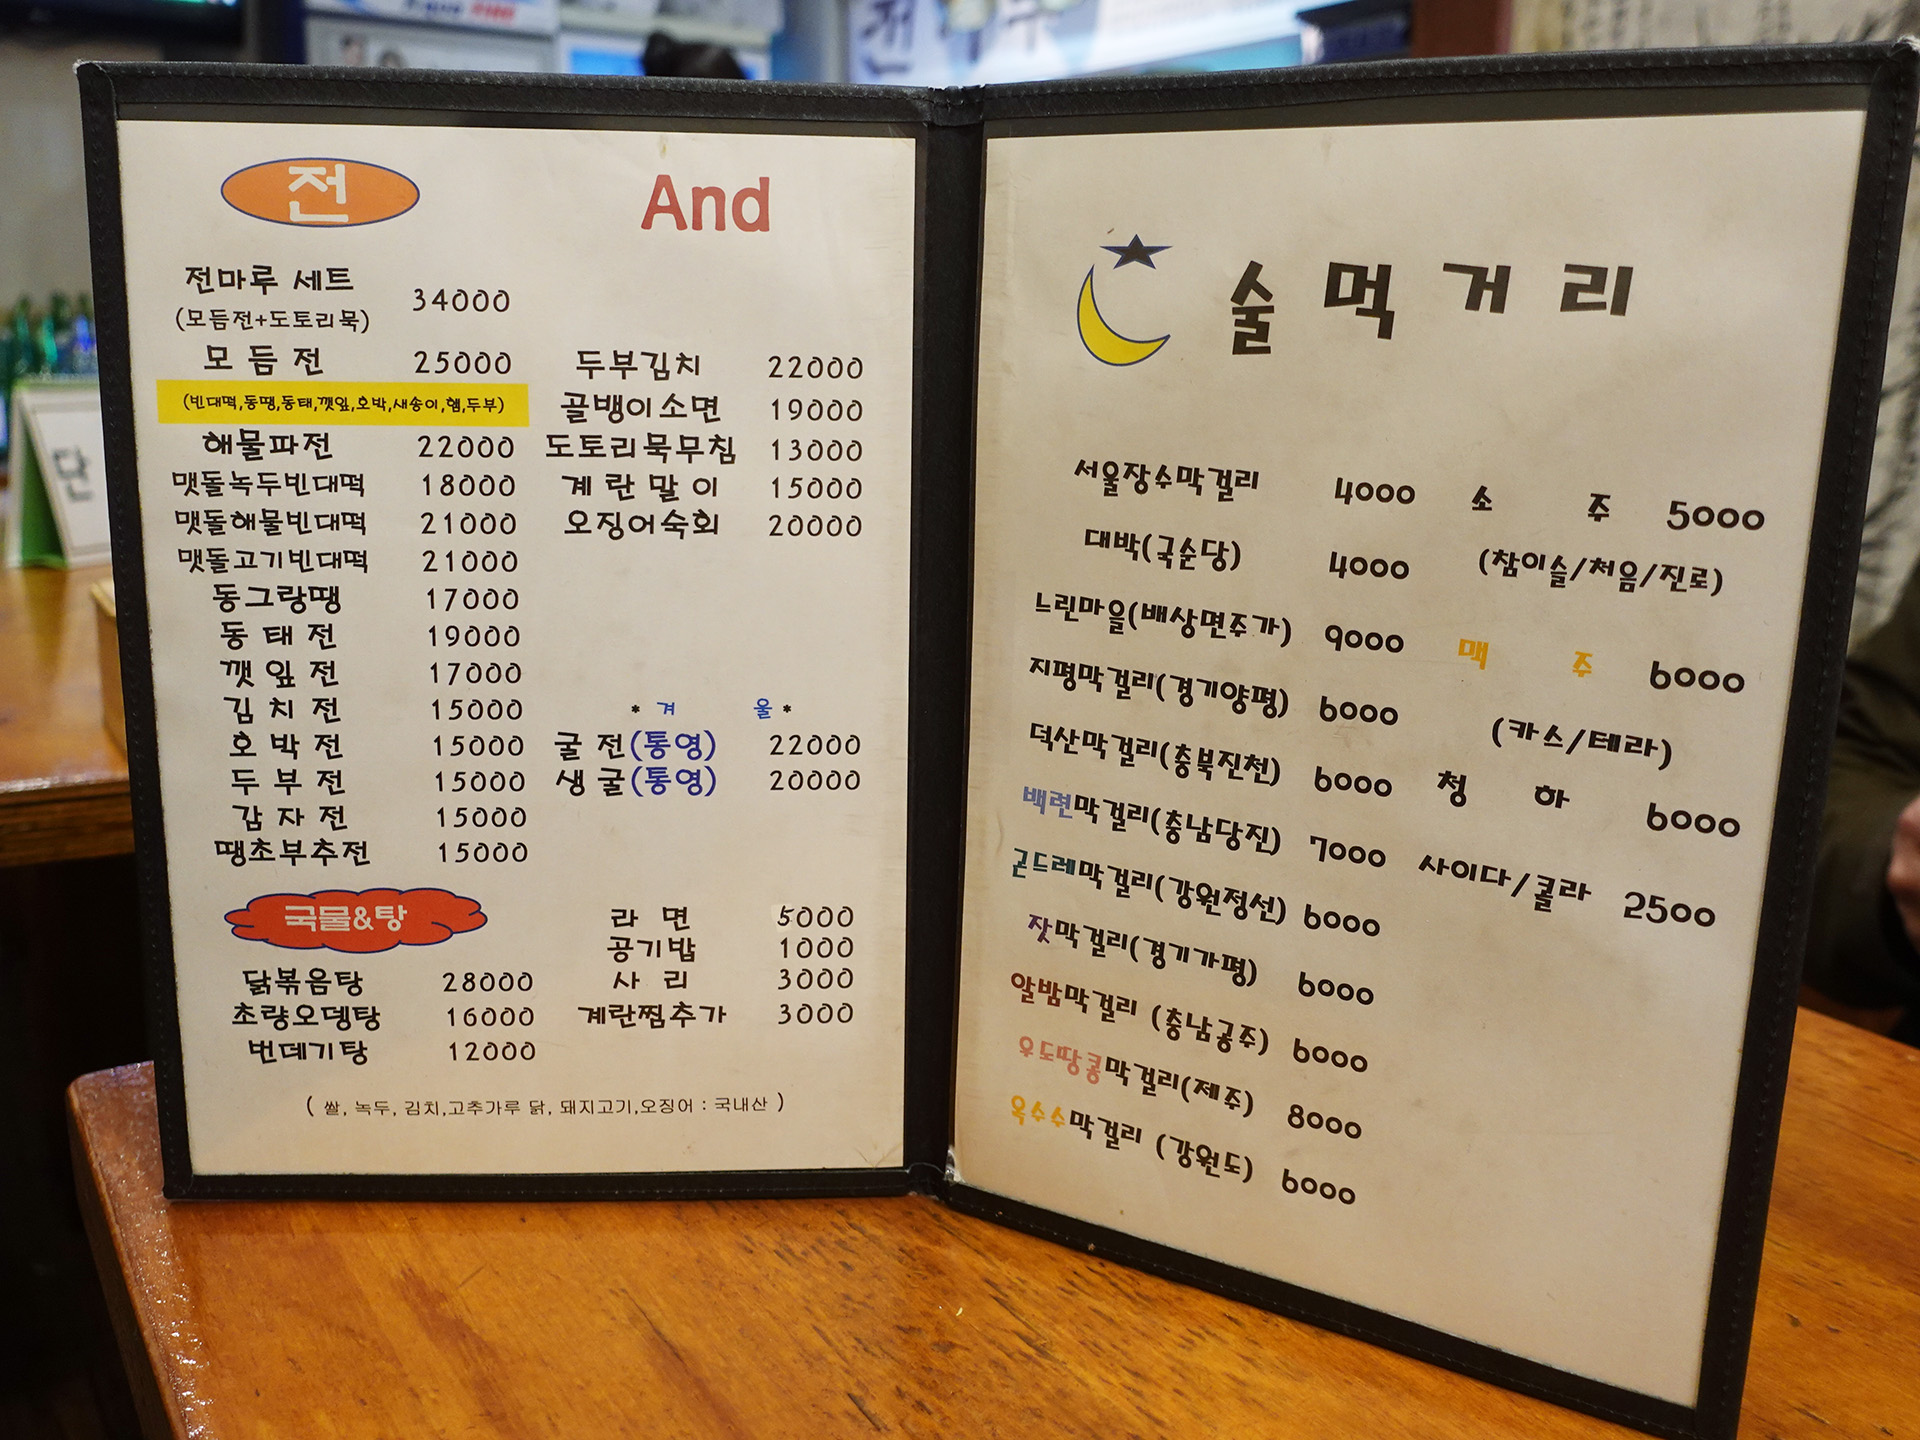 전
And
전마루 세트 34000
(모듬전+도토리묵)
모듬전 25000
(빈대떡,동땡,동태,깻잎,호박,새송이,햄,두부)
해물파전 22000
맷돌녹두빈대떡 18000
맷돌해물빈대떡 21000
맷돌고기빈대떡 21000
동그랑땡 17000
동태전 19000
깻잎전 17000
김치전 15000
호박전 15000
두부전 15000
감자전 15000
땡초부추전 15000
두부김치 22000
골뱅이소면 19000
도토리묵무침 13000
계란말이 15000
오징어숙회 20000
* 겨 울 *
굴전(통영) 22000
생굴(통영) 20000
국물&탕
닭볶음탕 28000
초량오뎅탕 16000
번데기탕 12000
라면 5000
공기밥 1000
사리 3000
계란찜추가 3000
( 쌀, 녹두, 김치,고추가루 닭, 돼지고기,오징어 : 국내산 )
술먹거리
서울장수막걸리 4000
대박(국순당) 4000
느린마을(배상면주가) 9000
지평막걸리(경기양평) 6000
덕산막걸리(충북진천) 6000
백련막걸리(충남당진) 7000
곤드레막걸리(강원정선) 6000
잣막걸리(경기가평) 6000
알밤막걸리 (충남공주) 6000
우도땅콩막걸리(제주) 8000
옥수수막걸리 (강원도) 6000
소주 5000
(참이슬/처음/진로)
맥주 6000
(카스/테라)
청하 6000
사이다/콜라 2500
단